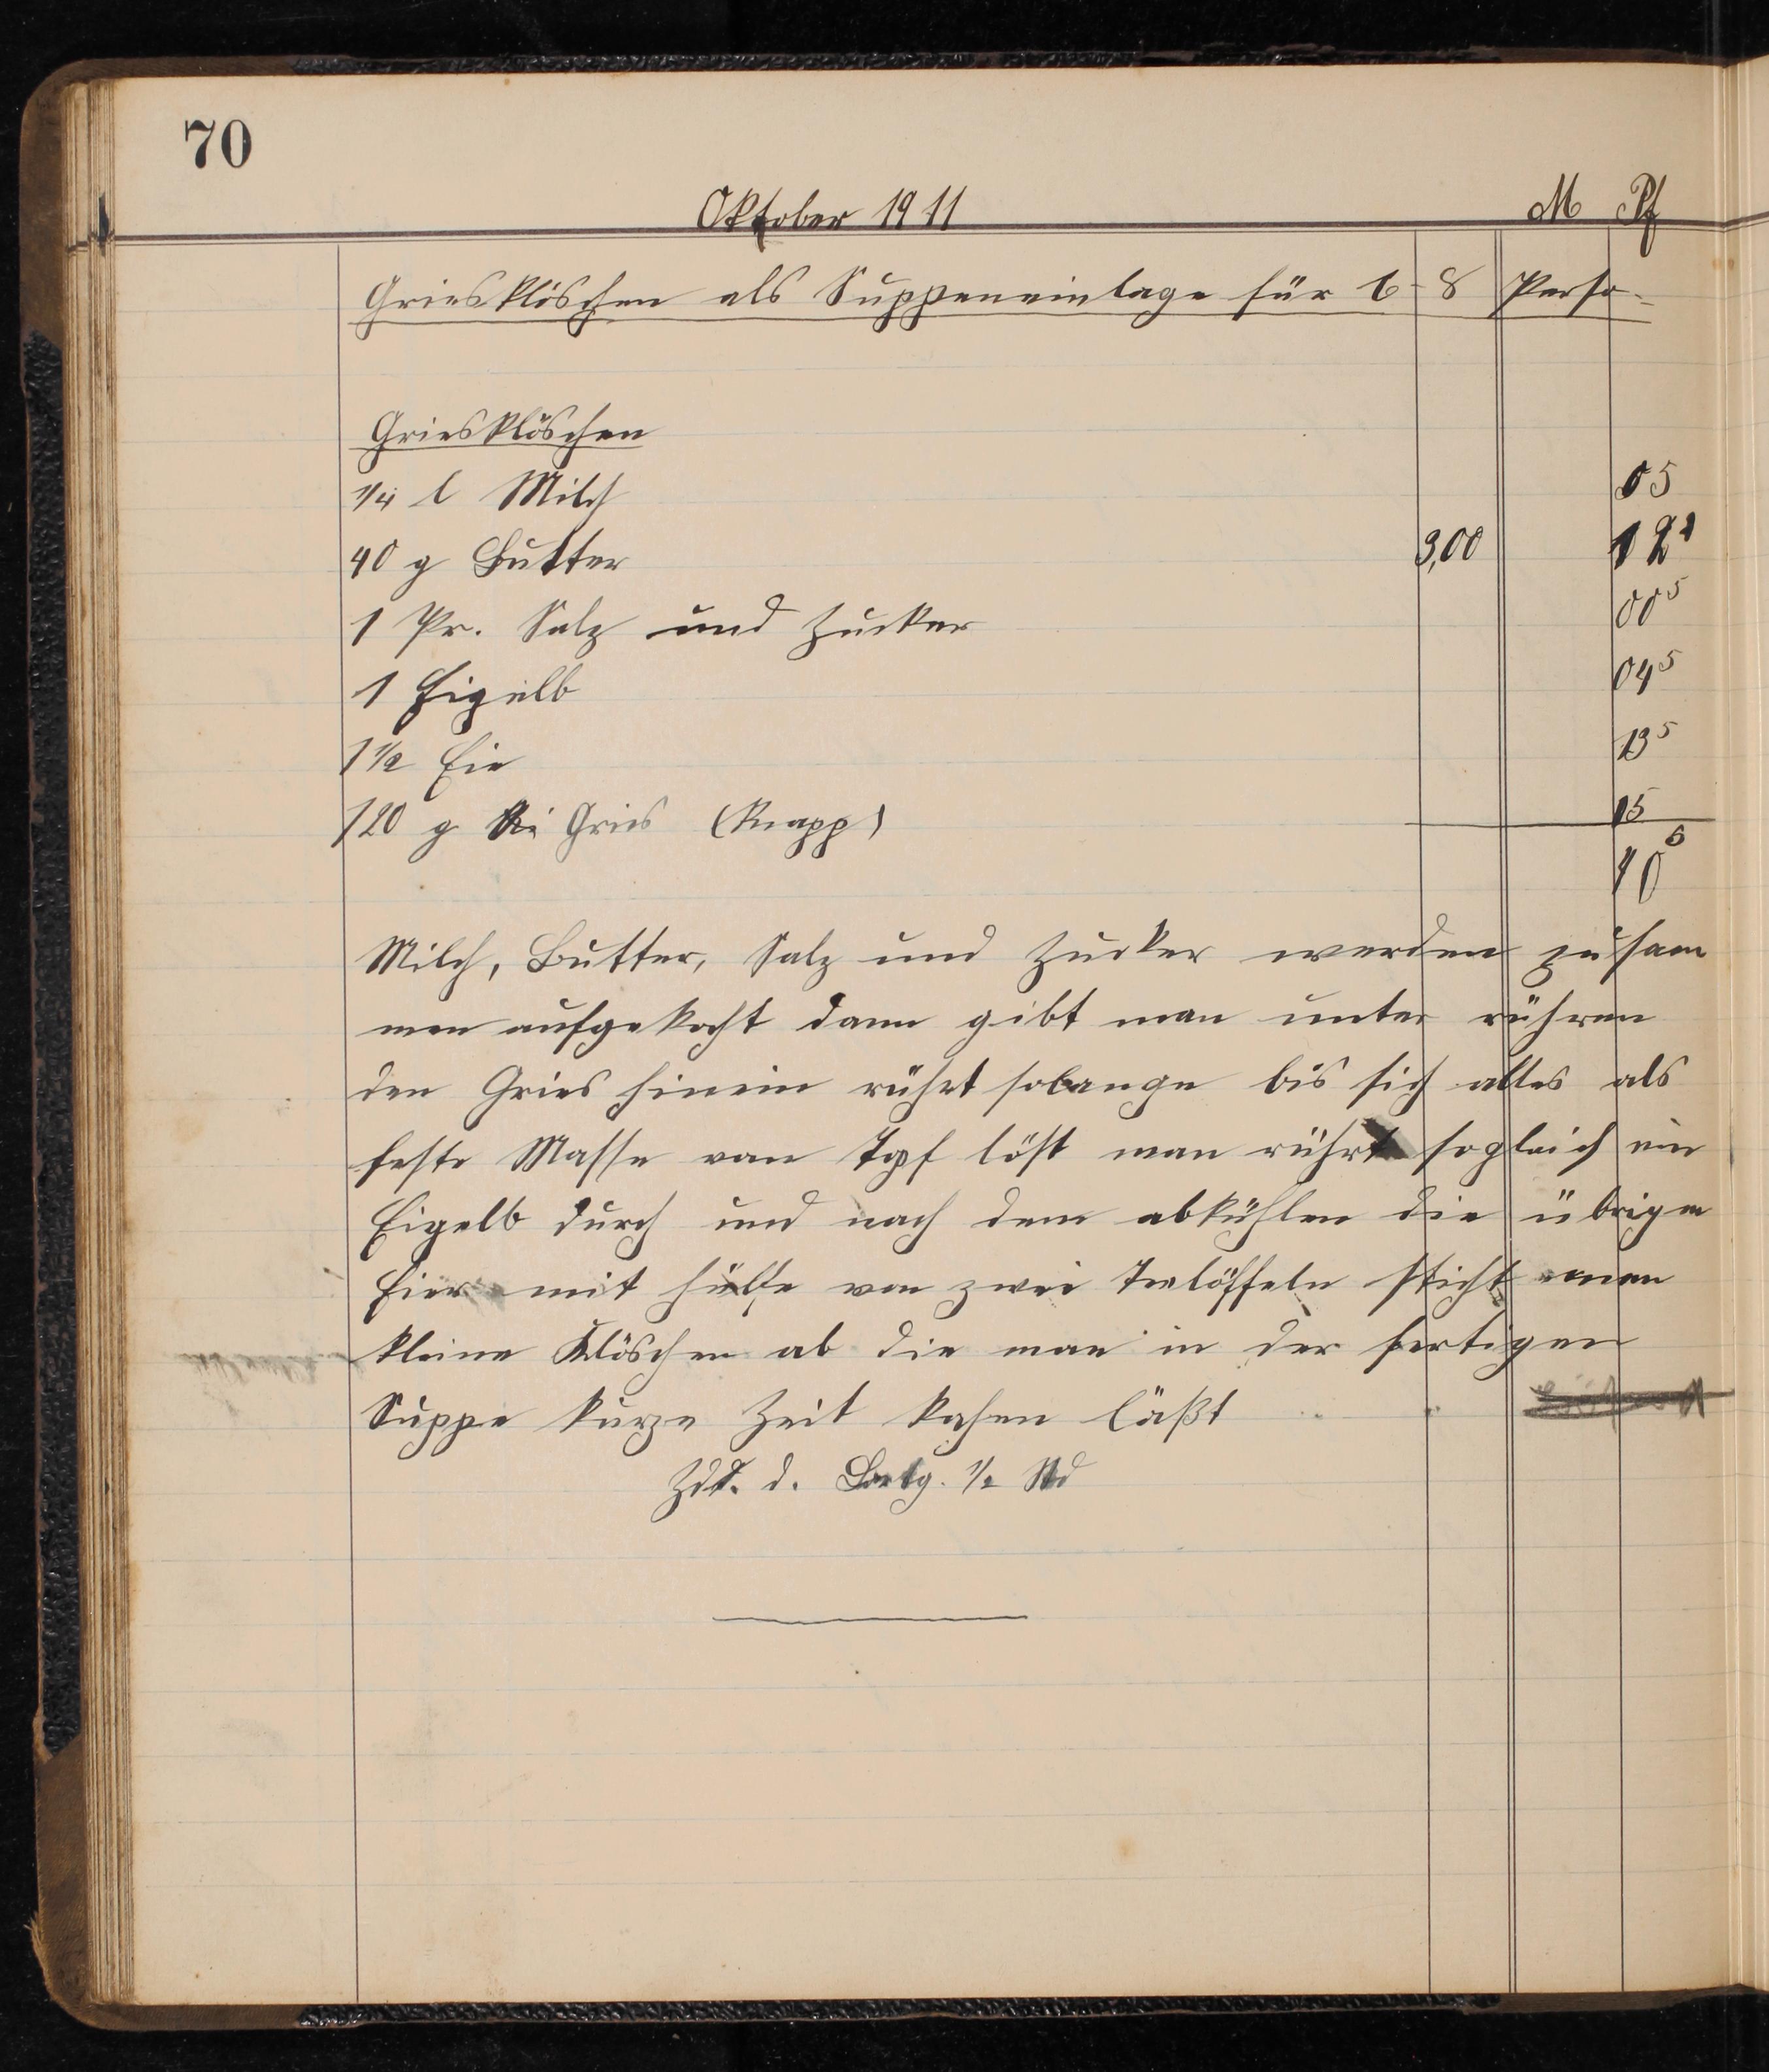 70
Oktober 1911 M Pf
Griesklöschen als Suppeneinlage für 6-8 Perso-
Griesklöschen
1/4 l Milch 05
40 g Butter 3,00 12
1 Pr. Salz und Zucker 00⁵
1 Eigelb 04⁵
1 1/2 Eie 13⁵
120 g Gries (knapp) 15
40⁵
Milch, Butter, Salz und Zucker werden zusam
men aufgekocht dann gibt man unter rühren
den Gries hinein rührt solange bis sich alles als
feste Masse vom Topf löst man rührt sogleich ein
Eigelb durch und nach dem abkühlen die übrigen
Eier mit hülfe von zwei Teelöffeln sticht man
kleine Klöschen ab die man in der fertigen
Suppe kurze Zeit kochen läßt
Zdt. d. Bertg. 1/2 Std